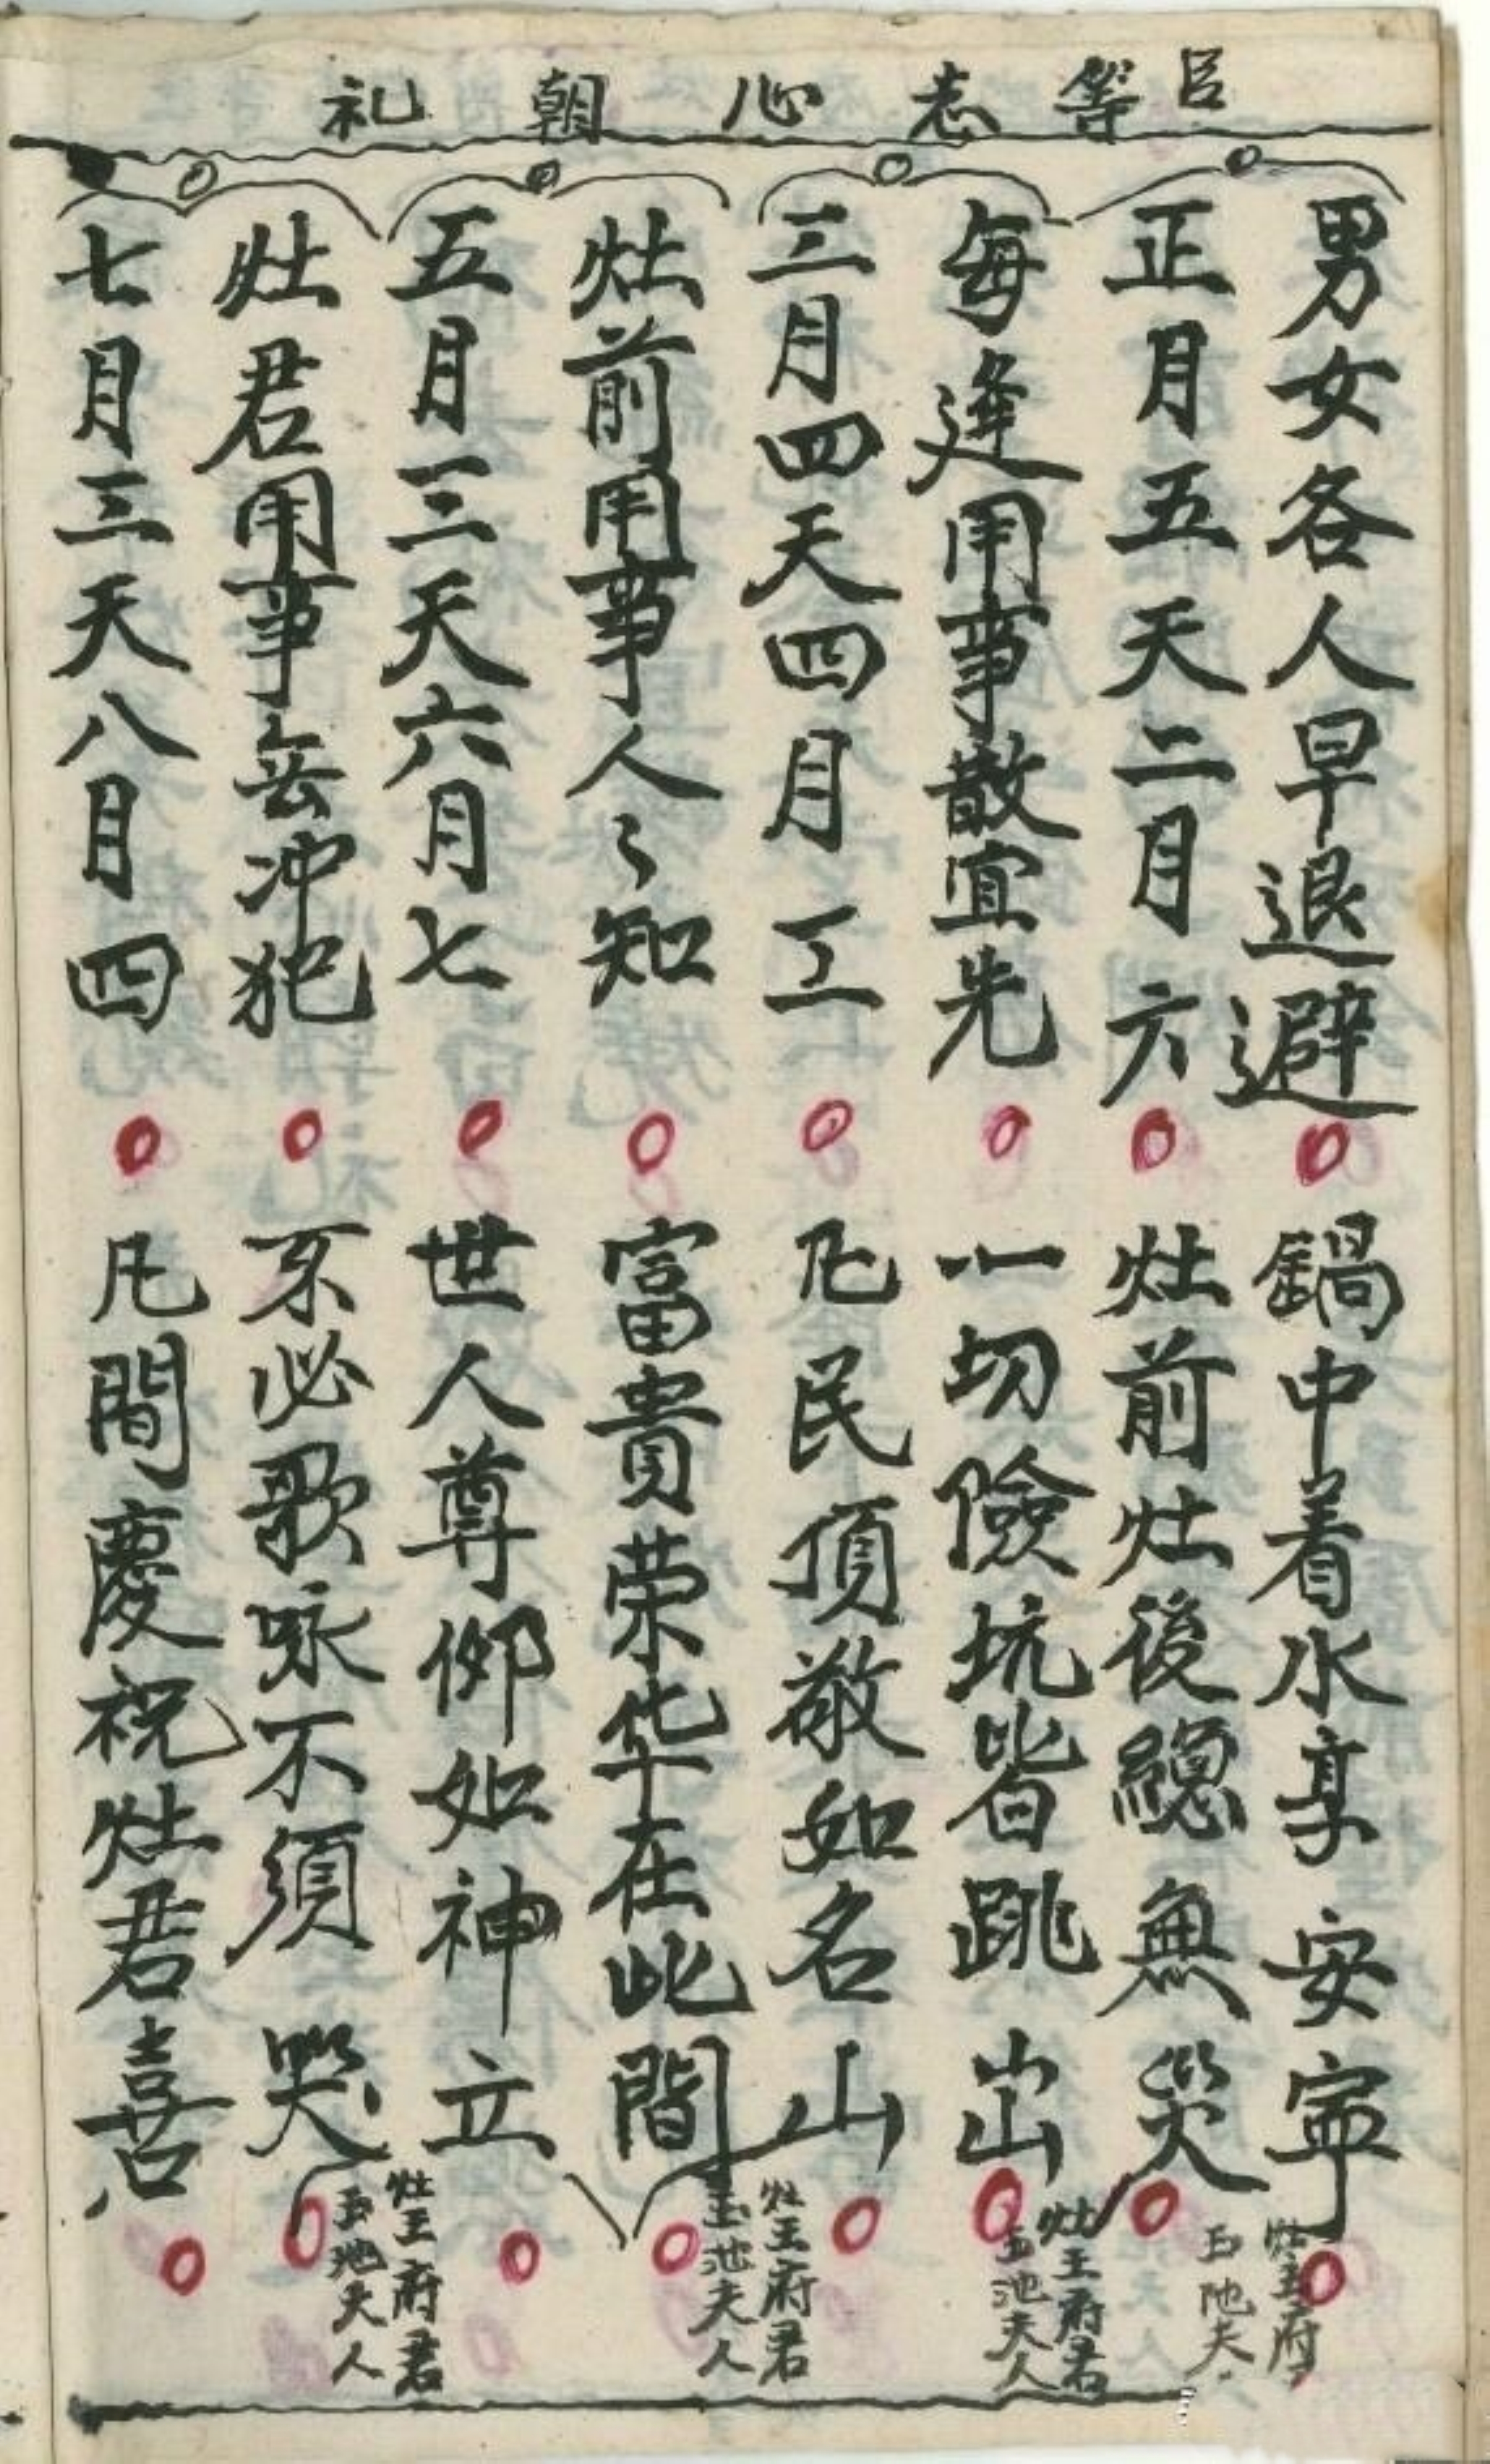 臣等志心朝礼
男女各人早退避
鍋中着水享安寕
正月五天二月六
灶前灶後總無災
每逢用事散宜先
一切險坑皆跳出
三月四天四月工
凡民頂敬如名山
灶前用事人々知
富貴荣华在此間
五月三天六月七
世人尊仰如神立
灶君用事無冲犯
不必歌咏不須哭
七月三天八月四
凡間慶祝灶君喜
灶王府
玉池夫
灶王府君
玉池夫人
灶王府君
玉池夫人
灶王府君
玉池夫人